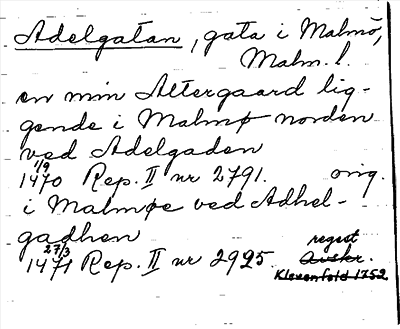 Adelgatan, gata i Malmö,
Malm. l.
en min Altergaard lig-
gende i Malmø norden
ved Adelgaden
1/9
1470 Rep. II nr 2791. orig.
i Malmøe ved Adhel-
gadhen
27/3 regest
1471 Rep. II nr 2925. Avskr.
Klevenfeld 1752